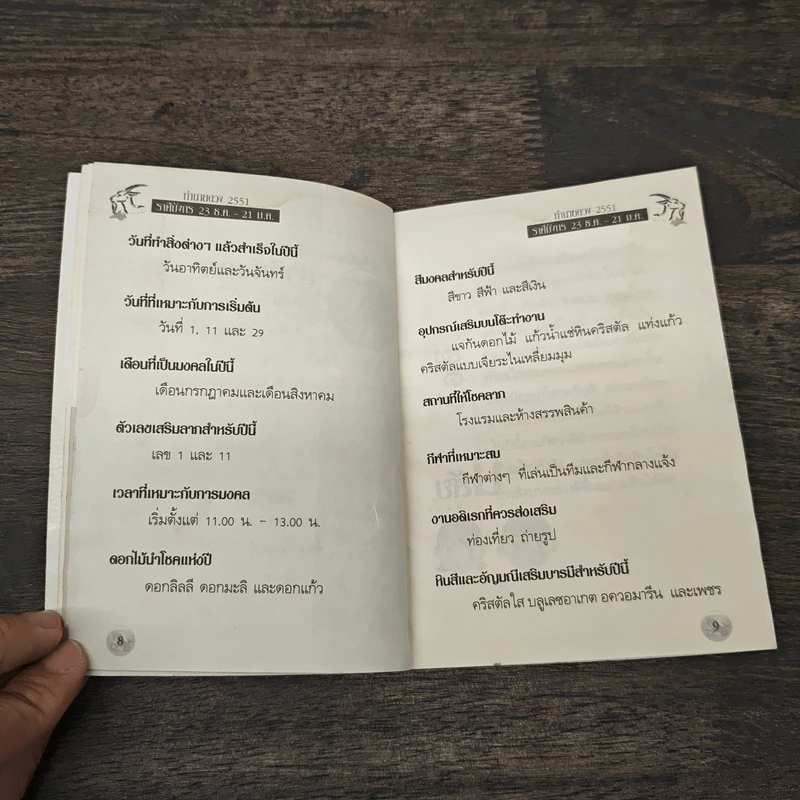 ทำนายดวง 2551
ราศีมังกร 23 ธ.ค. - 21 ม.ค.
วันที่ทำสิ่งต่างๆ แล้วสำเร็จในปีนี้
วันอาทิตย์และวันจันทร์
วันที่ที่เหมาะกับการเริ่มต้น
วันที่ 1, 11 และ 29
เดือนที่เป็นมงคลในปีนี้
เดือนกรกฎาคมและเดือนสิงหาคม
ตัวเลขเสริมลาภสำหรับปีนี้
เลข 1 และ 11
เวลาที่เหมาะกับการมงคล
เริ่มตั้งแต่ 11.00 น. - 13.00 น.
ดอกไม้นำโชคแห่งปี
ดอกลิลลี่ ดอกมะลิ และดอกแก้ว
8
ทำนายดวง 2551
ราศีมังกร 23 ธ.ค. - 21 ม.ค.
สีมงคลสำหรับปีนี้
สีขาว สีฟ้า และสีเงิน
อุปกรณ์เสริมบนโต๊ะทำงาน
แจกันดอกไม้ แก้วน้ำแช่หินคริสตัล แท่งแก้ว
คริสตัลแบบเจียระไนเหลี่ยมมุม
สถานที่ให้โชคลาภ
โรงแรมและห้างสรรพสินค้า
กีฬาที่เหมาะสม
กีฬาต่างๆ ที่เล่นเป็นทีมและกีฬากลางแจ้ง
งานอดิเรกที่ควรส่งเสริม
ท่องเที่ยว ถ่ายรูป
หินสีและอัญมณีเสริมบารมีสำหรับปีนี้
คริสตัลใส บลูเลซอาเกต อความารีน และเพชร
9